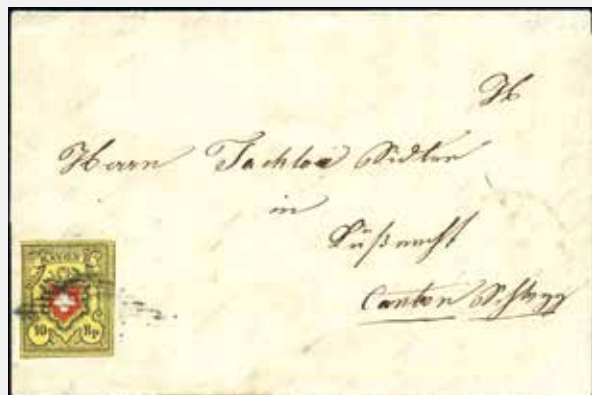 H
Herrn Sidler
in
Küßnacht
Canton Schwyz
RAYON II
10 Rp